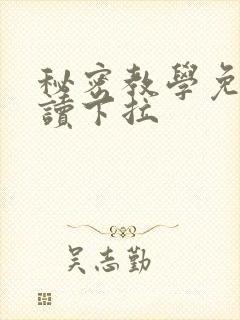 秘密教學免
讀下拉
吴志勤